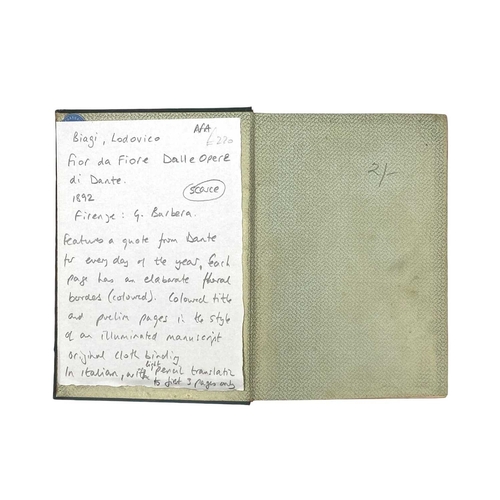 AFA
Biagi, Lodovico £220
Fior da Fiore Dalle Opere
di Dante.
1892 scarce
Firenze : G. Barbera.
Features a quote from Dante
for every day of the year, Each
page has an elaborate floral
border (coloured). Coloured title
and prelim pages in the style
of an illuminated manuscript
original cloth binding
In Italian, with light pencil translatio
to first 3 pages only
2/-